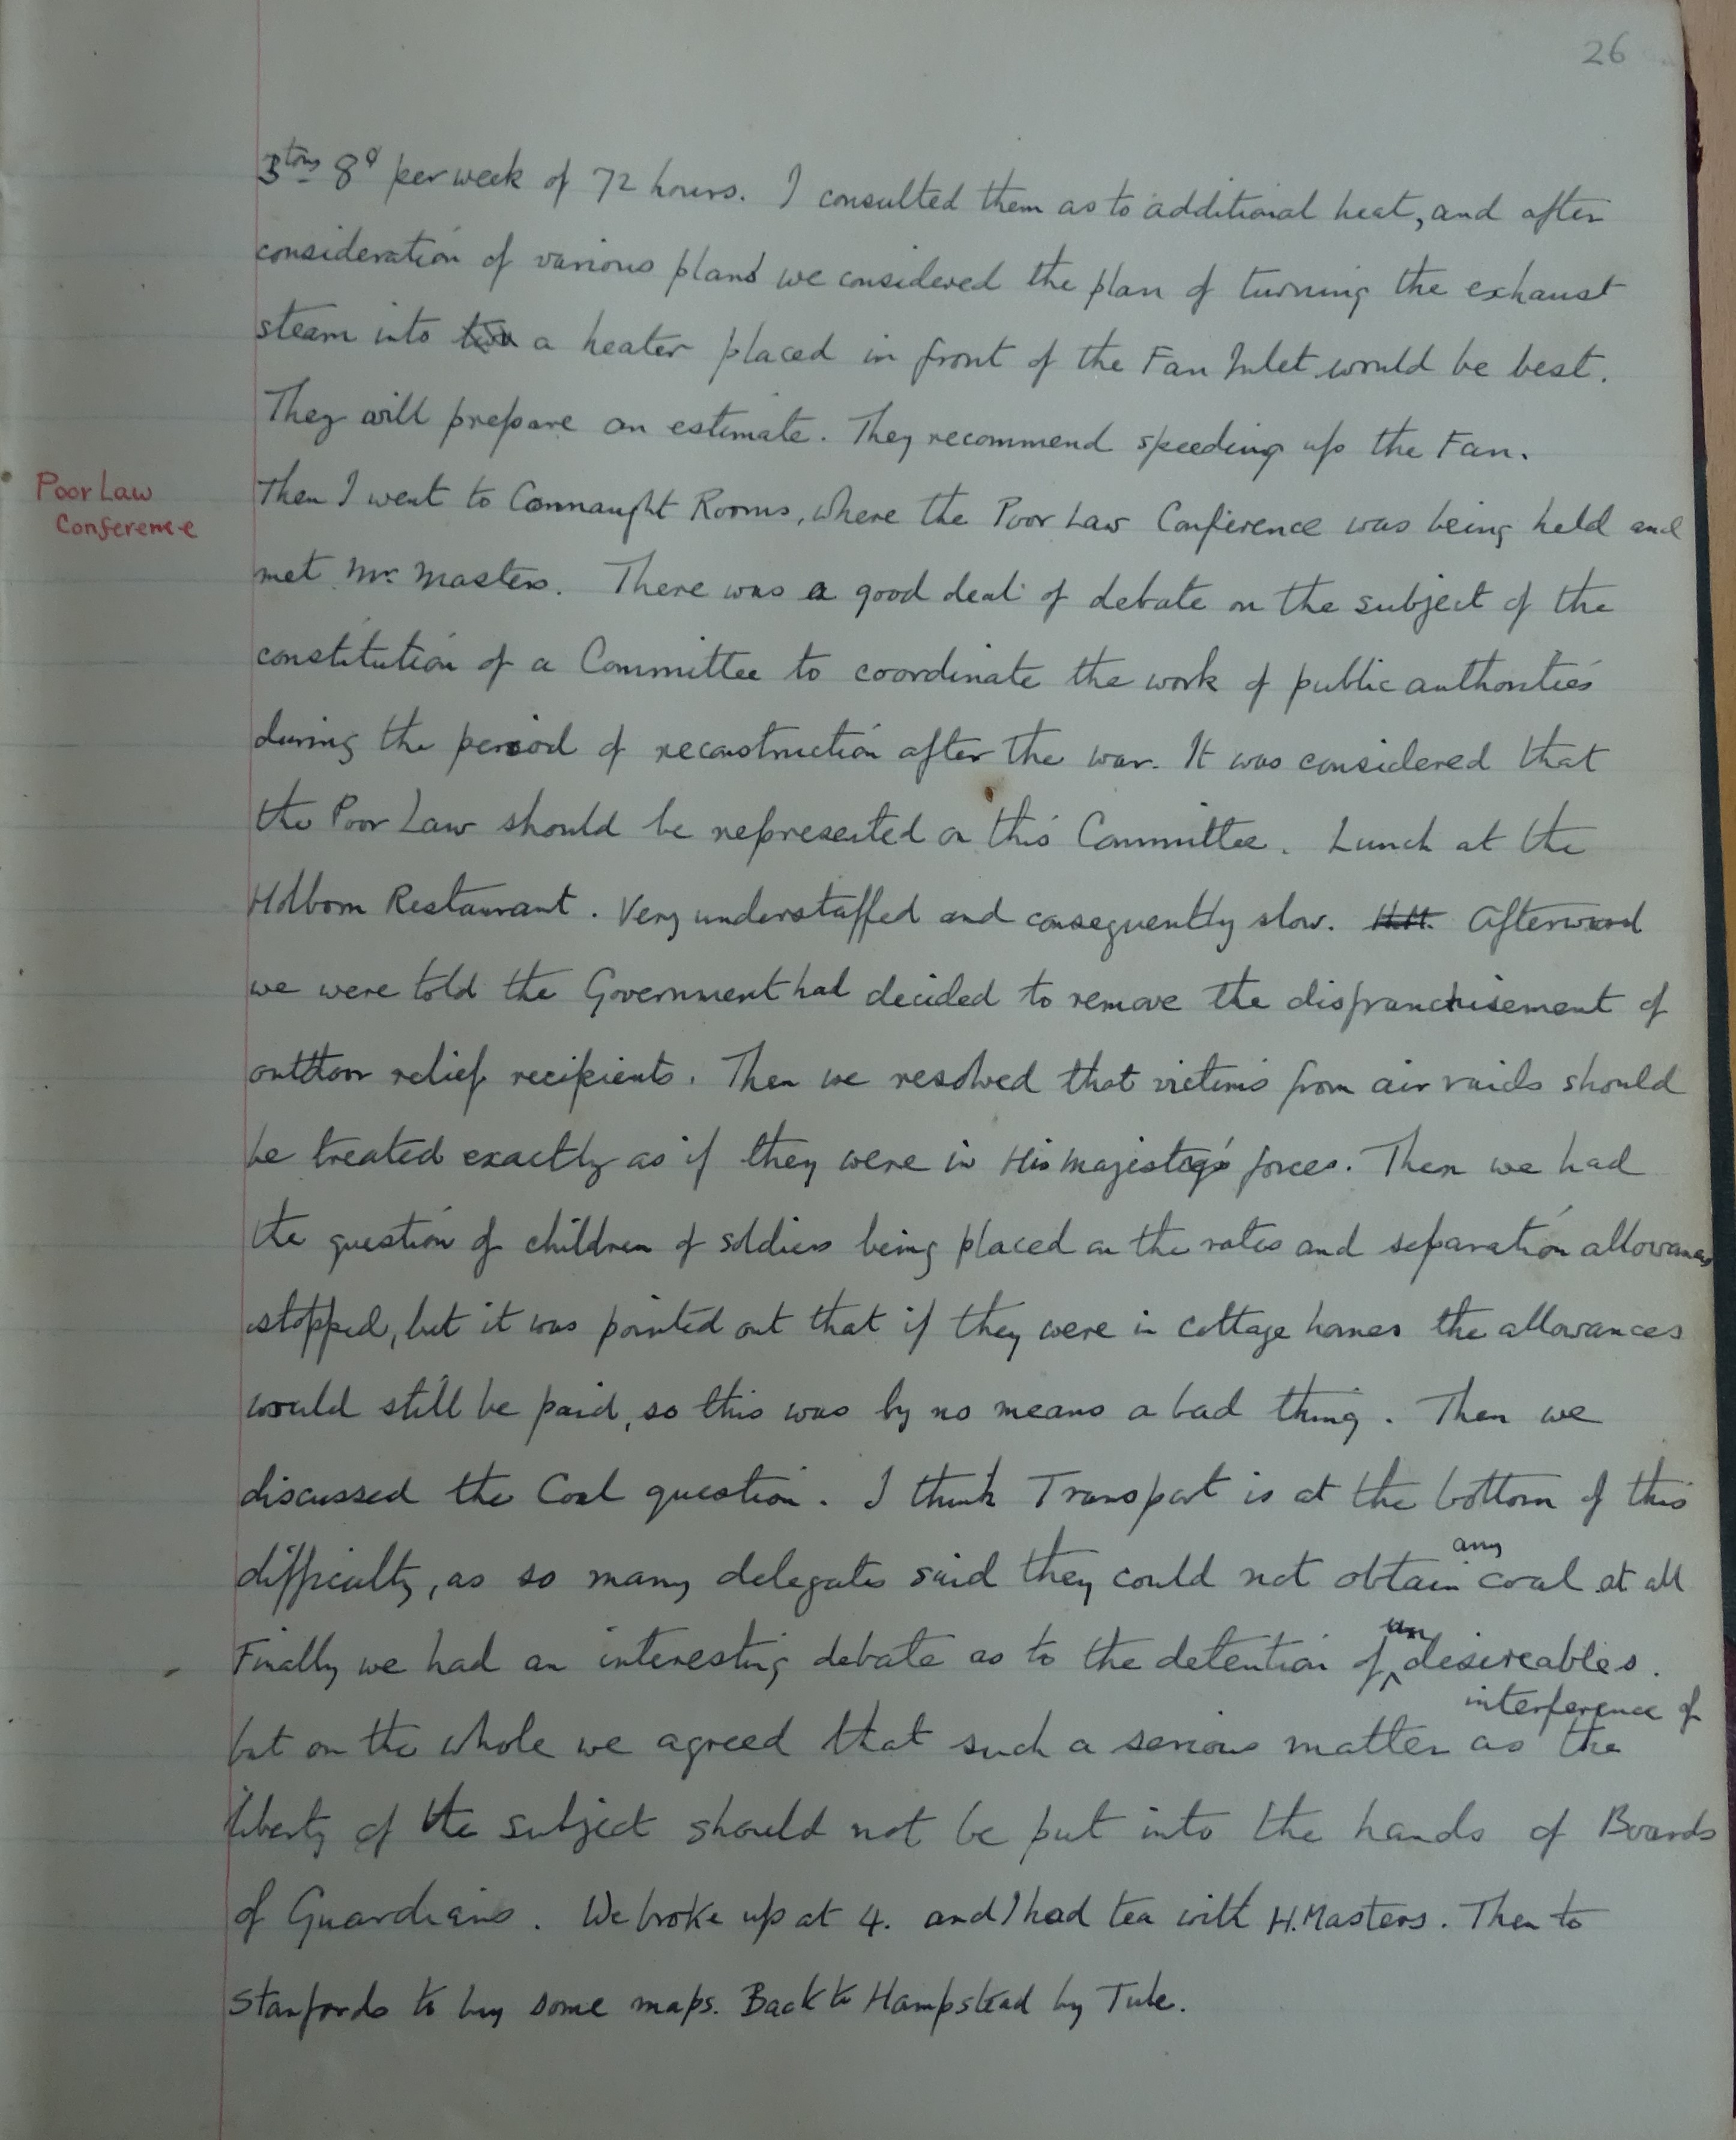 26
3 tons 8 q per week of 72 hours. I consulted them as to additional heat, and after
consideration of various plans we considered the plan of turning the exhaust
steam into a heater placed in front of the Fan Inlet would be best.
They will prepare an estimate. They recommend speeding up the Fan.
Poor Law
Conference
Then I went to Connaught Rooms, where the Poor Law Conference was being held and
met Mr. Masters. There was a good deal of debate on the subject of the
constitution of a Committee to coordinate the work of public authorities
during the period of reconstruction after the war. It was considered that
the Poor Law should be represented on this Committee. Lunch at the
Holborn Restaurant. Very understaffed and consequently slow. H.M. Afterward
we were told the Government had decided to remove the disfranchisement of
outdoor relief recipients. Then we resolved that victims from air raids should
be treated exactly as if they were in His Majesty's forces. Then we had
the question of children of soldiers being placed on the rates and separation allowances
stopped, but it was pointed out that if they were in cottage homes the allowances
would still be paid, so this was by no means a bad thing. Then we
discussed the Coal question. I think Transport is at the bottom of this
difficulty, as so many delegates said they could not obtain any coal at all
Finally we had an interesting debate as to the detention of undesireables.
but on the whole we agreed that such a serious matter as interference of the
liberty of the subject should not be put into the hands of Boards
of Guardians. We broke up at 4. and I had tea with H. Masters. Then to
Stanfords to buy some maps. Back to Hampstead by Tube.